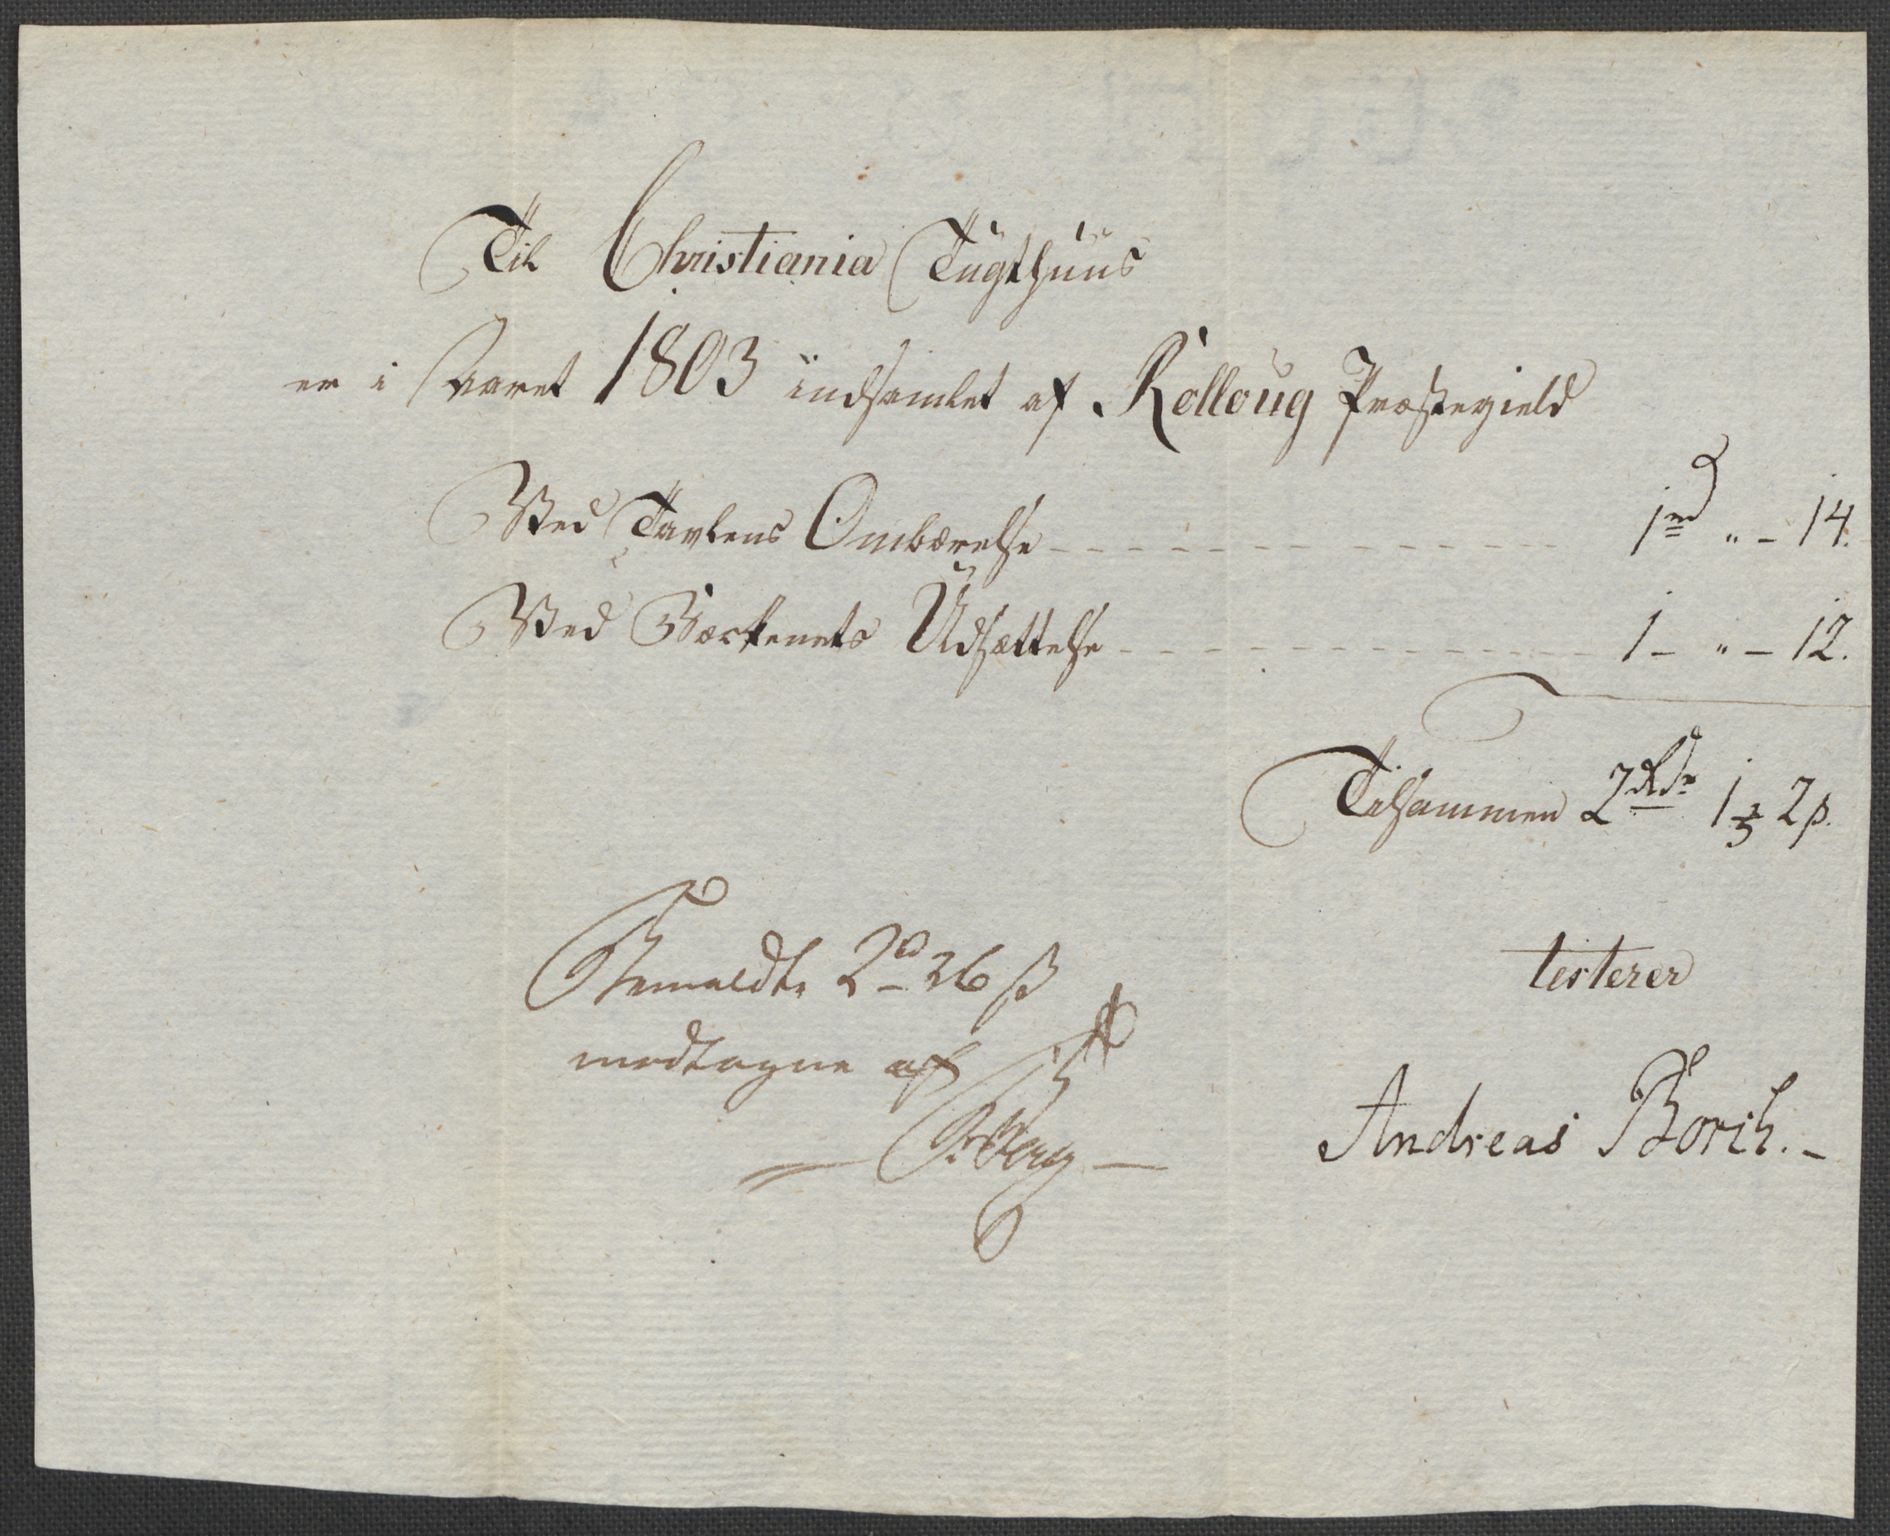 Til Christiania Tugthuus
er i Aaret 1803 indsamlet af Rolloug Præstegield
Ved Tavlens Ombærelse - - - 1 rd " - 14.
Ved Beckenets Udsættelse - - - 1 - " - 12.
Tilsammen 2 Rdr 1 ₻ 2 ß.
Bemeldte 2 rd 26 ß
modtagne af
Berg
testerer
Andreas Borch. -